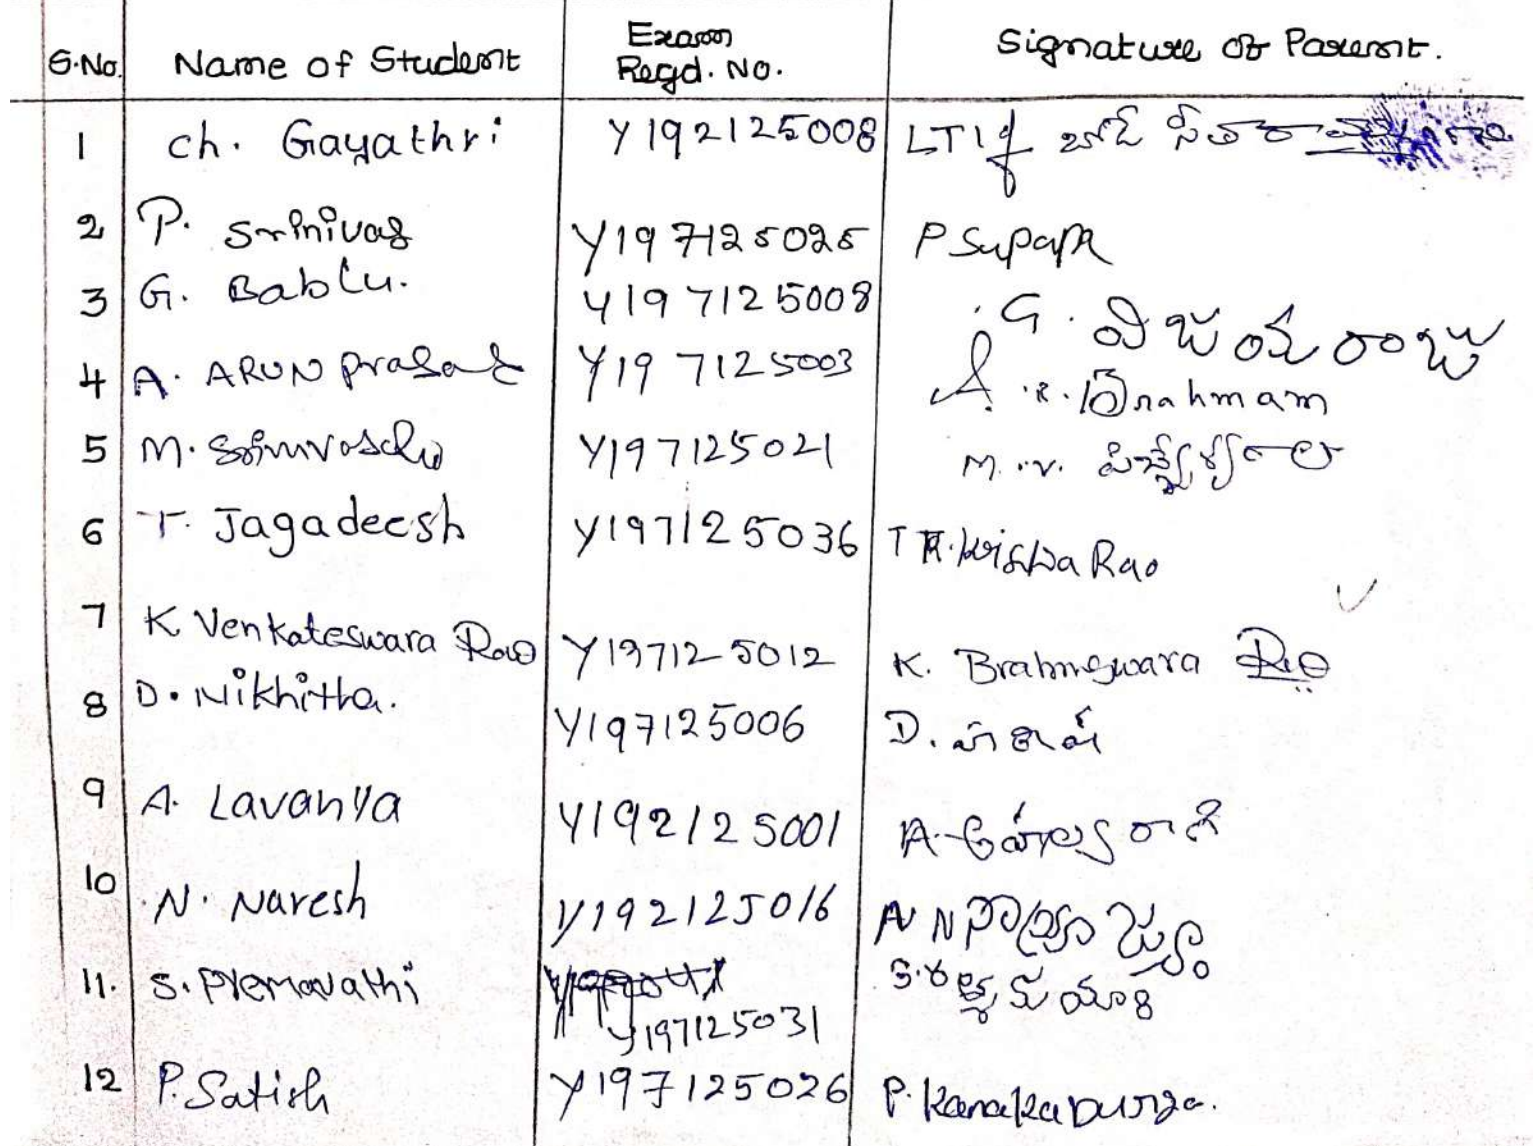 S.No. Name of Student Exam Regd. No. Signature of Parent.
1 ch. Gayathri Y192125008 LTI of
2 P. Srinivas Y197125025 P
3 G. Bablu. Y197125008 G. విజయ రాజు
4 A. ARUN prasad Y197125003 A. R. Brahmam
5 M. Y197125021 M. V.
6 T. Jagadeesh Y197125036 T R. krishna Rao
7 K Venkateswara Rao Y197125012 K. Brahmeswara Rao
8 D. Nikhitha. Y197125006 D.
9 A. Lavanya Y192125001 A. రాణి
10 N. Naresh Y192125016 N
11. S. Premavathi Y197125031 S.
12 P. Satish Y197125026 P. Kanaka Durga.